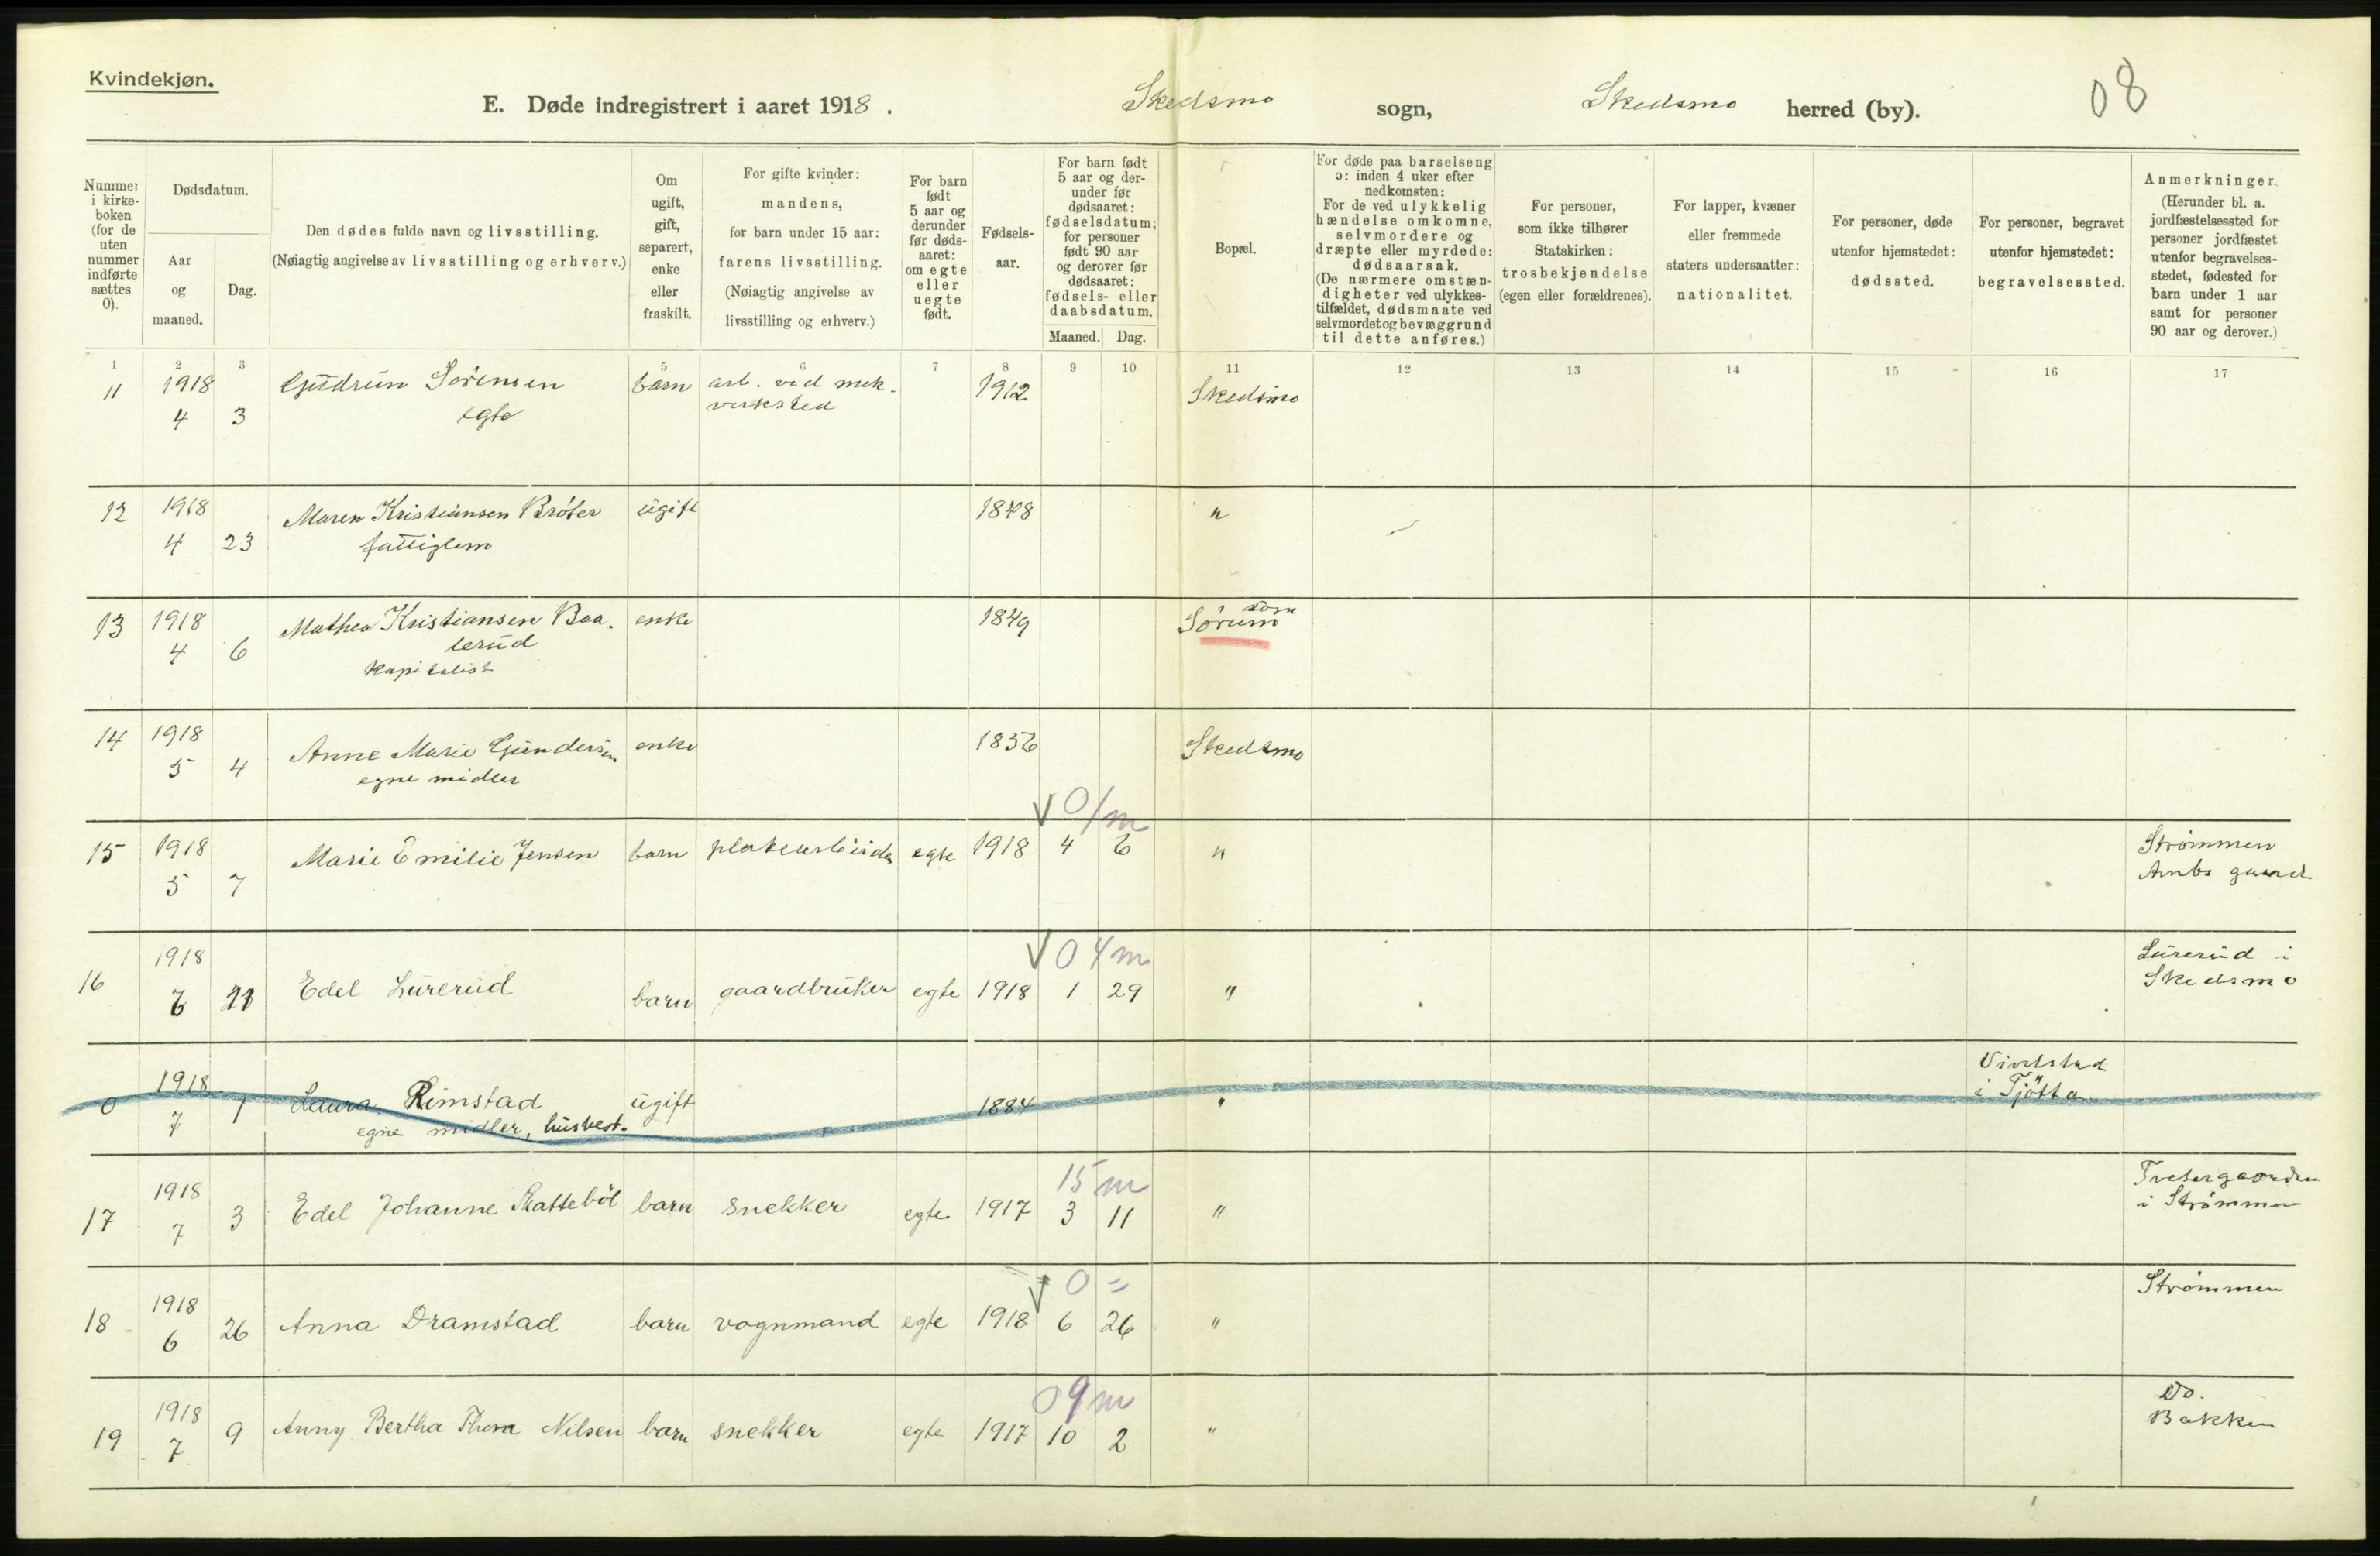 Kvindekjøn.
E. Døde indregistrert i aaret 1918. Skedsmo sogn, Skedsmo herred (by). 08
Nummer i kirkeboken (for de uten nummer indførte sættes 0).
Dødsdatum.
Aar og maaned.
Dag.
Den dødes fulde navn og livsstilling.
(Nøiagtig angivelse av livsstilling og erhverv.)
Om ugift, gift, separert, enke eller fraskilt.
For gifte kvinder: mandens, for barn under 15 aar: farens livsstilling. (Nøiagtig angivelse av livsstilling og erhverv.)
For barn født 5 aar og derunder før dødsaaret: om egte eller uegte født.
Fødselsaar.
For barn født 5 aar og derunder før dødsaaret: fødselsdatum; for personer født 90 aar og derover før dødsaaret: fødsels- eller daabsdatum.
Maaned. Dag.
Bopæl.
For døde paa barselseng ɔ: inden 4 uker efter nedkomsten: For de ved ulykkelig hændelse omkomne, selvmordere og dræpte eller myrdede: dødsaarsak. (De nærmere omstændigheter ved ulykkestilfældet, dødsmaate ved selvmordet og bevæggrund til dette anføres.)
For personer, som ikke tilhører Statskirken: trosbekjendelse (egen eller forældrenes).
For lapper, kvæner eller fremmede staters undersaatter: nationalitet.
For personer, døde utenfor hjemstedet: dødssted.
For personer, begravet utenfor hjemstedet: begravelsessted.
Anmerkninger. (Herunder bl. a. jordfæstelsessted for personer jordfæstet utenfor begravelsesstedet, fødested for barn under 1 aar samt for personer 90 aar og derover.)
1 2 3 5 6 7 8 9 10 11 12 13 14 15 16 17
11 1918 Gudrun Sørensen barn arb. ved mek. 1912 Skedsmo
4 3 egte verksted
12 1918 Maren Kristiansen Bråter ugift 1848 "
4 23 fattiglem
13 1918 Mathea Kristiansen Baa- enke 1849 Sørum
4 6 lerud
kapitalist
14 1918 Anne Marie Gundersen enke 1856 Skedsmo
5 4 egne midler
0/m
15 1918 Marie Emilie Jensen barn egte 1918 4 6 " Strømmen
5 7
04m
16 1918 Edel Lurerud barn gaardbruker egte 1918 1 29 " Lurerud i
6 21 Skedsmo
0 1918 Laura Rimstad ugift 1884 " i Tjøtta
7 1 egne midler, husbest.
15m
17 1918 Edel Johanne Skattebøl barn snekker egte 1917 3 11 " Tvetergaarden
7 3 i Strømmen
0 =
18 1918 Anna Dramstad barn vognmand egte 1918 6 26 " Strømmen
6 26
09m
19 1918 Anny Bertha Thora Nilsen barn snekker egte 1917 10 2 " Do.
7 9 Bakken